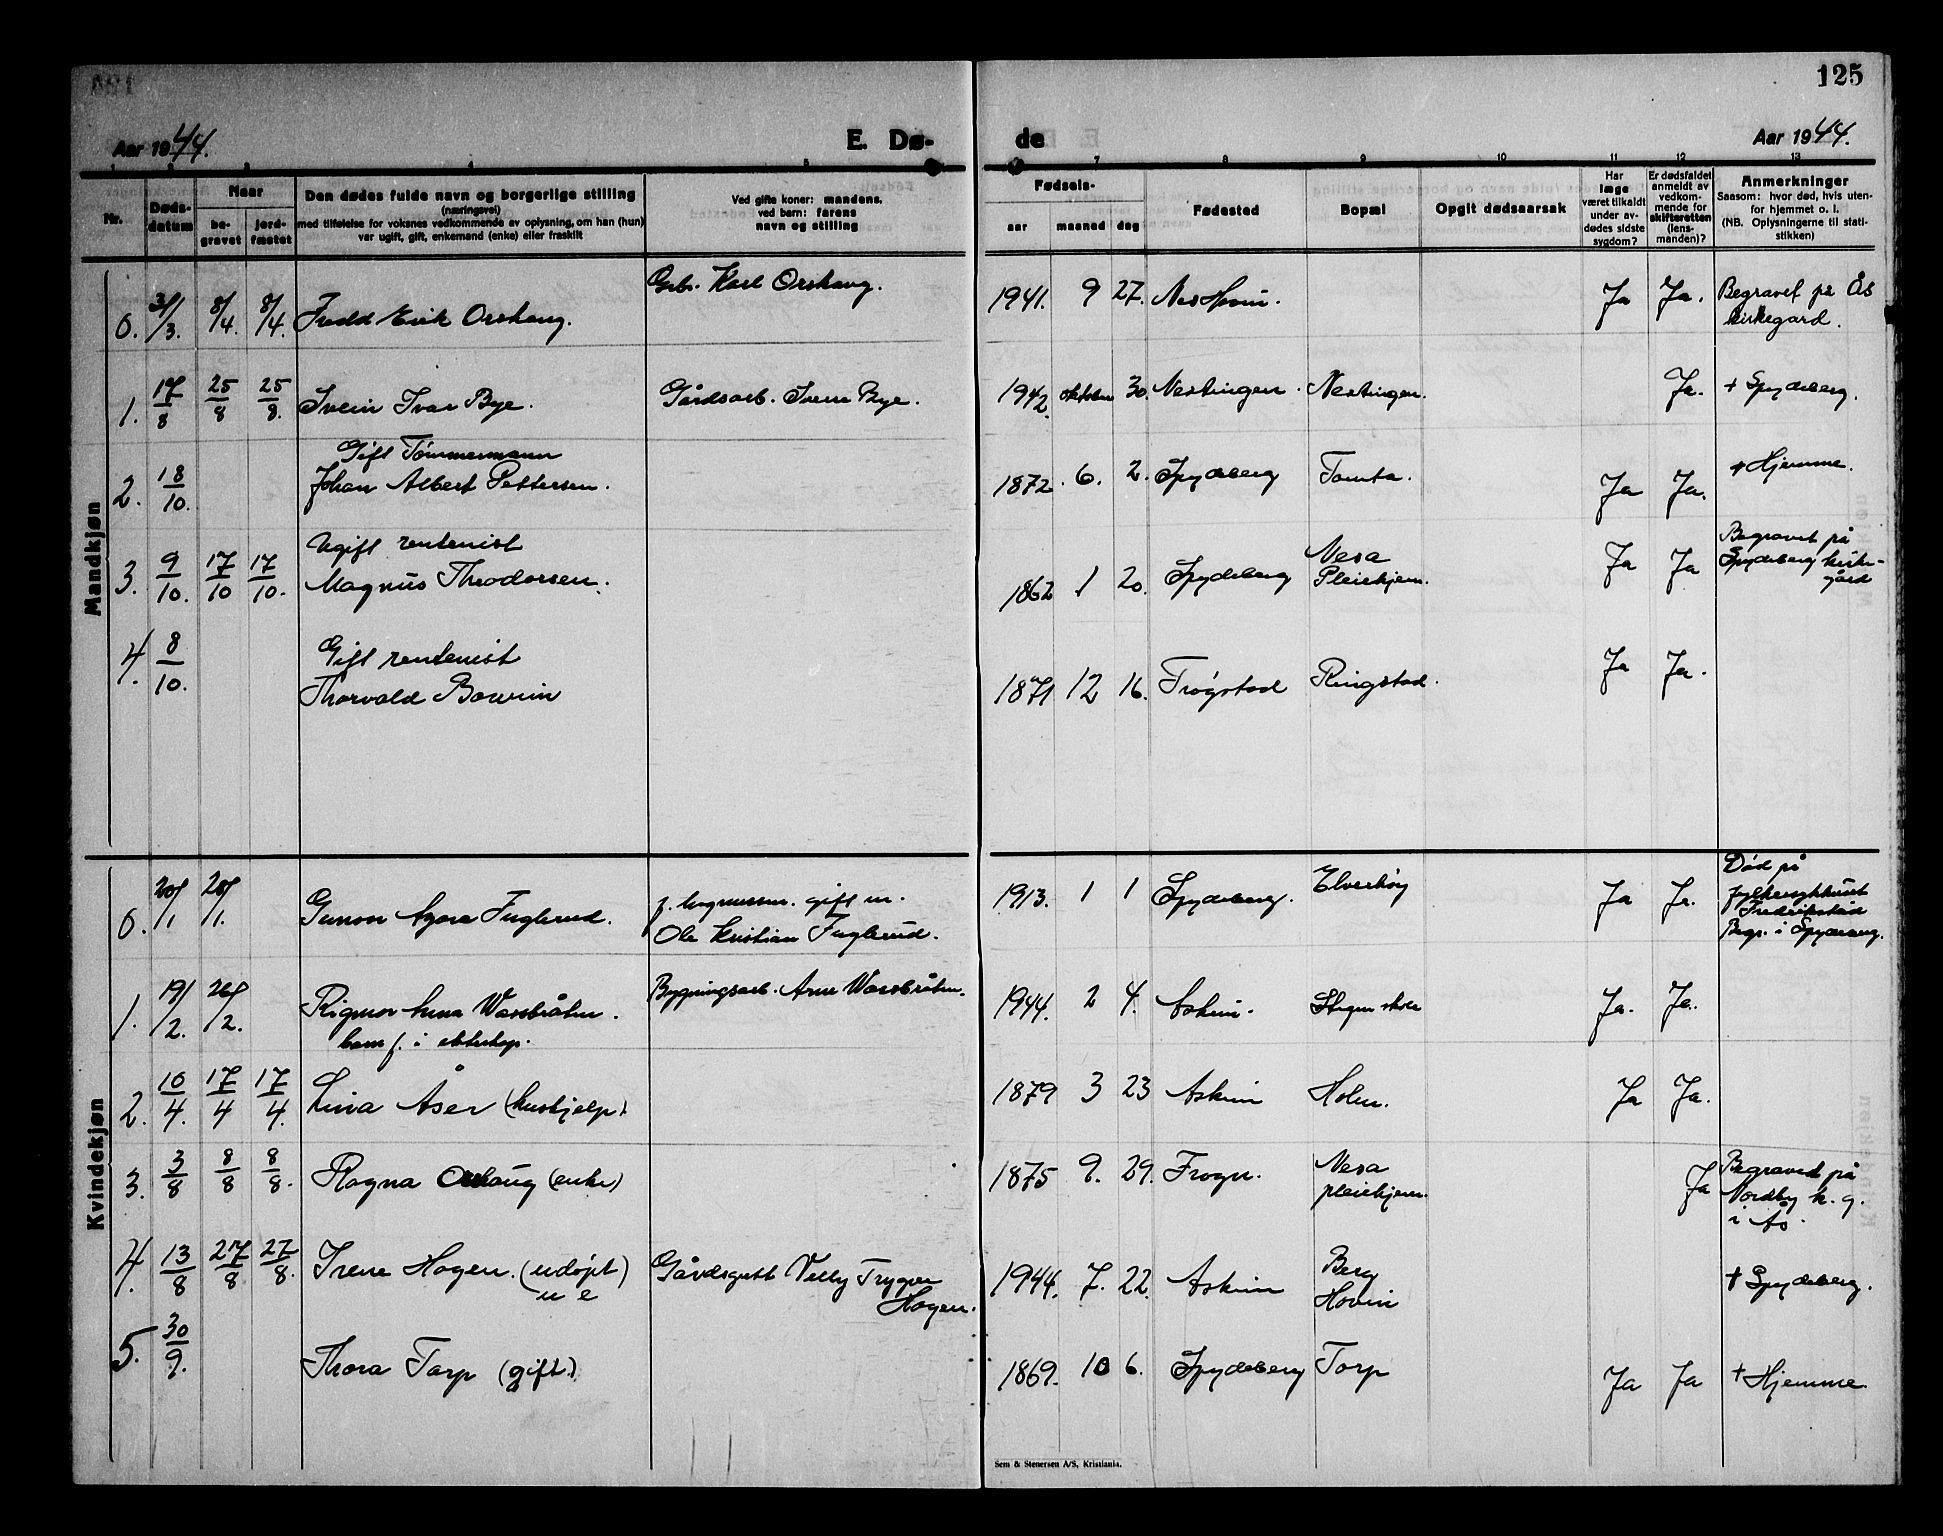 125
Aar 1944.
E. Dø-
de
Aar 1944.
1 2 3 4 5 7 8 9 10 11 12 13
Nr.
Døds-
datum
Naar
be-
gravet
jord-
fæstet
Den dødes fulde navn og borgerlige stilling
(næringsvei)
med tilføielse for voksnes vedkommende av oplysning, om han (hun)
var ugift, gift, enkemand (enke) eller fraskilt
Ved gifte koner: mandens.
ved barn: farens
navn og stilling
Fødsels-
aar maaned dag
Fødested
Bopæl
Opgit dødsaarsak
Har
læge
været tilkaldt
under av-
dødes sidste
sygdom?
Er dødsfaldet
anmeldt av
vedkom-
mende for
skifteretten
(lens-
manden)?
Anmerkninger
Saasom: hvor død, hvis uten-
for hjemmet o. l.
(NB. Oplysningerne til stati-
stikken)
Mandkjøn
Karl Orshaug.
0. 31/3. 8/4. 8/4. Fredd Erik Orshaug. 1941. 9 27. Nes Hovin. Ja Ja. Begravet på Ås
kirkegard.
1. 17/8 25/8 25/8. Svein Ivar Bye. Gårdsarb. Bye. 1942. oktober 30. Nestingen. Nestingen. Ja. + Spydeberg.
Gift Tømmermann
2. 18/10. Johan Albert Pettersen. 1872. 6. 2. Spydeberg Tomta. Ja Ja. + Hjemme.
Ugift rentenist
3. 9/10. 17/10 17/10. Magnus Theodorsen. 1862 1 20. Spydeberg Vesa
Pleiehjem. Ja Ja Begravet på
Spydeberg kirke-
gård
Gift rentenist
4. 8/10. Thorvald 1871 12 16. Trøgstad Ringstad. Ja Ja.
Kvindekjøn
0. 20/1 28/1. Gunvor Agora Fuglerud. f. Magnussen. gift m.
Ole Kristian Fuglerud. 1913. 1 1 Spydeberg. Elverhøy Ja Ja. Død på
fylkessykehuset
Fredrikstad
Begr. i Spydeberg.
1. 19/2. 26/2. Rigmor Anna Vassbråten. Bygningsarb. Arne Vassbråten. 1944. 2 4. Askim. Stegen skole Ja. Ja.
barn f. i ekteskap.
2. 10/4. 17/4 17/4. Lina Åser (hushjelp). 1879 3 23 Askim Holm. Ja Ja.
3. 3/8 8/8 8/8. Ragna Orshaug (enke) 1875 9. 29. Frogn. Vesa
pleiehjem. Ja Begraved på
Nordby k. g.
i Ås.
4. 13/8 27/8 27/8. Irene Hagen. (udøpt)
u e Gårdsgutt Velly Trygve
Hagen. 1944. 7. 22. Askim Berg
Hovin + Spydeberg.
5. 30/9. Thora Torp (gift.) 1869. 10 6. Spydeberg Torp Ja Ja + Hjemme.
Sem & Stenersen A/S, Kristiania.